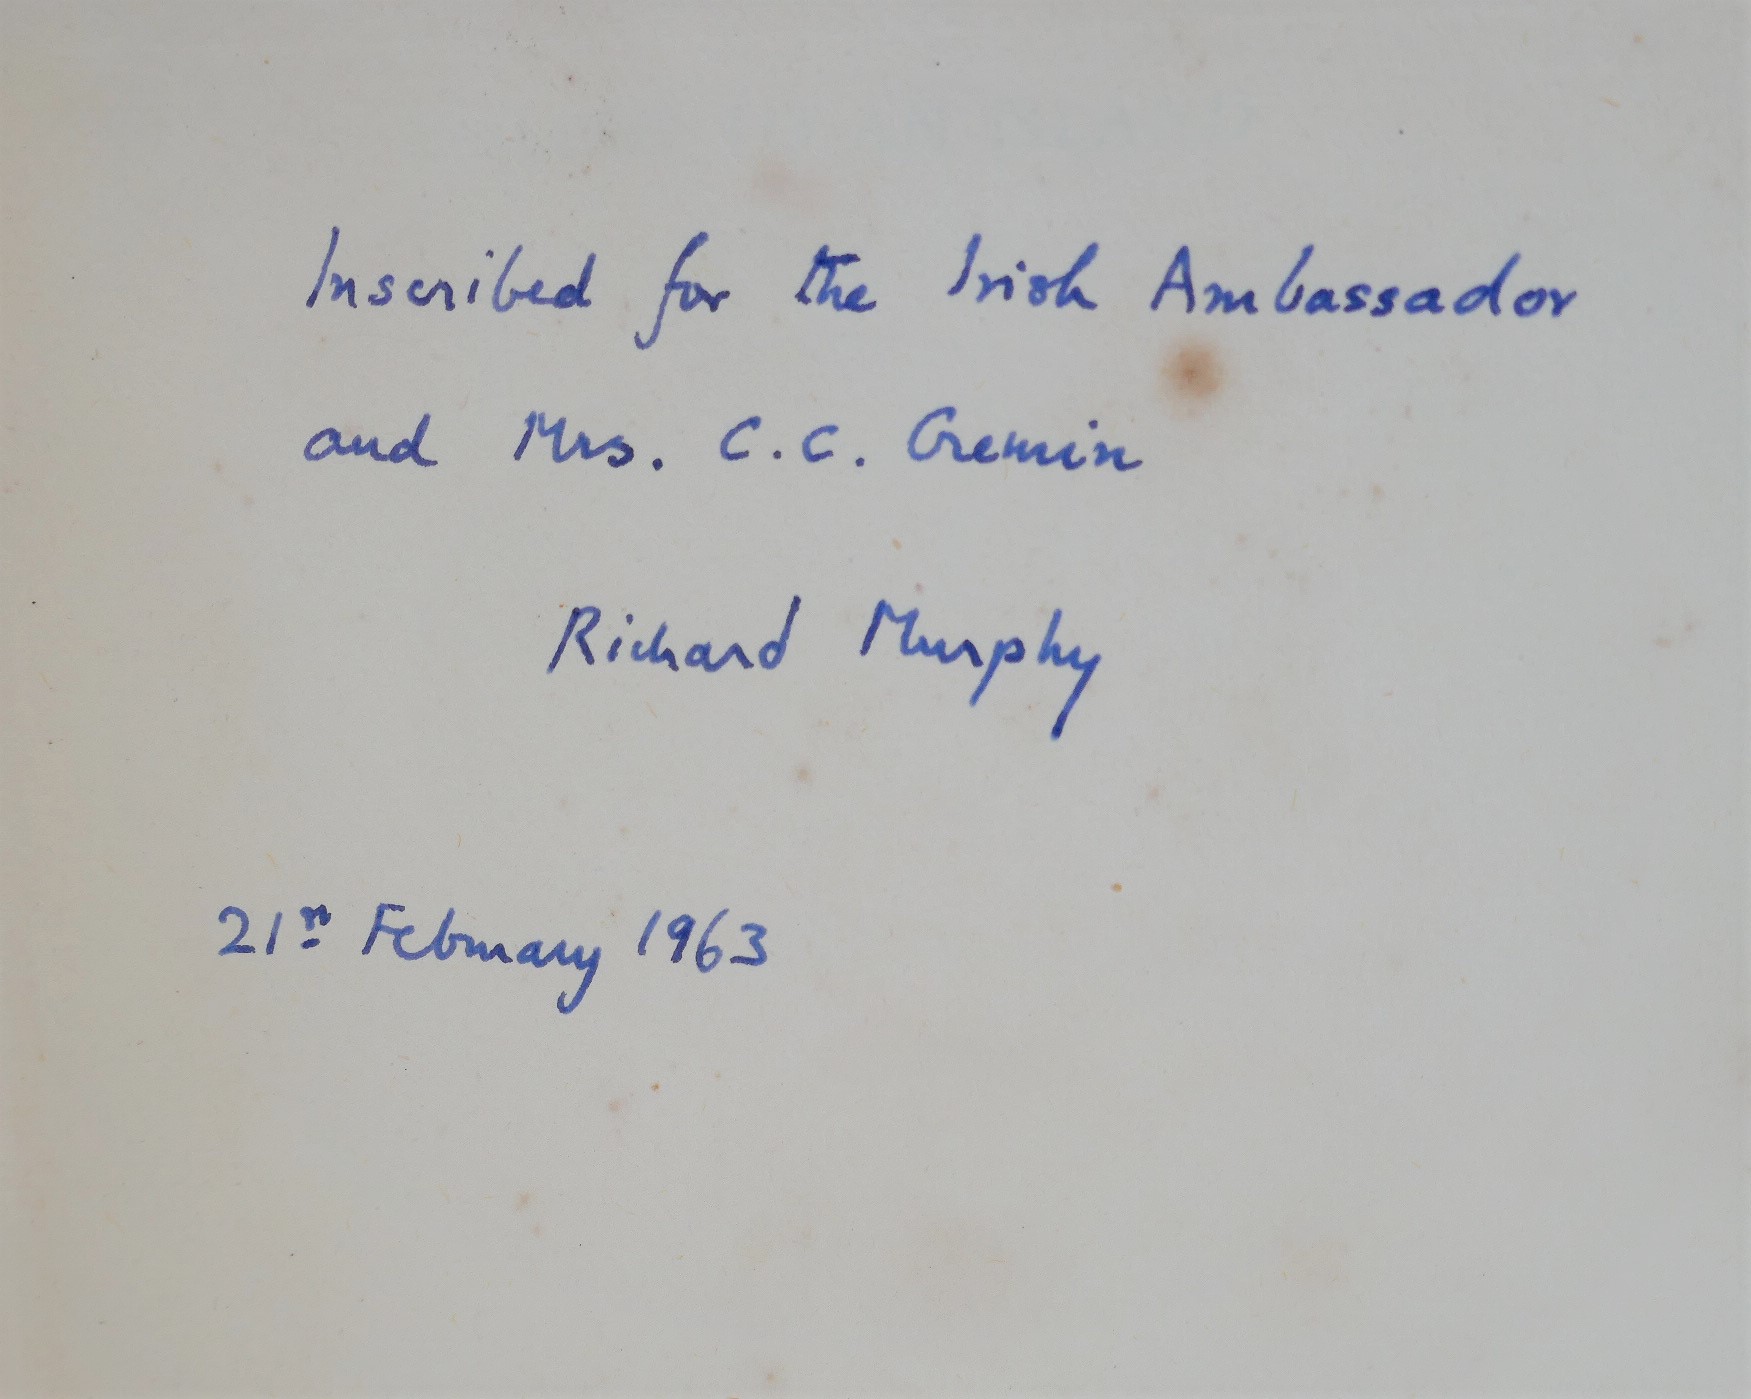 Inscribed for the Irish Ambassador
and Mrs. C.C. Cremin
Richard Murphy
21st February 1963